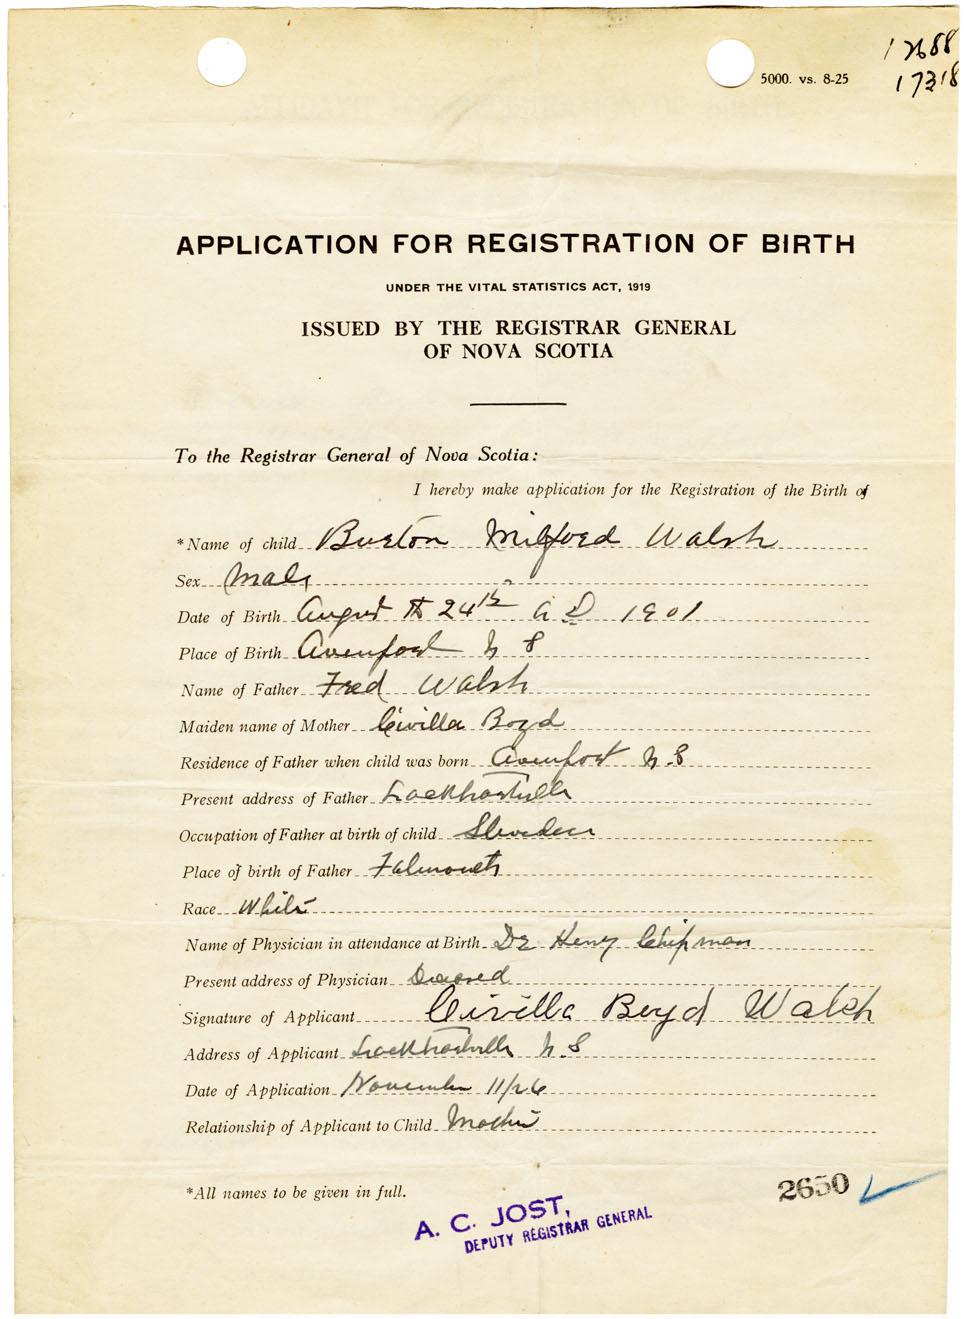 12688
5000. vs. 8-25
17318
APPLICATION FOR REGISTRATION OF BIRTH
UNDER THE VITAL STATISTICS ACT, 1919
ISSUED BY THE REGISTRAR GENERAL
OF NOVA SCOTIA
To the Registrar General of Nova Scotia:
I hereby make application for the Registration of the Birth of
*Name of child Burton Milford Walsh
Sex Male
Date of Birth August 24th A D 1901
Place of Birth Avonport N S
Name of Father Fred Walsh
Maiden name of Mother Civilla Boyd
Residence of Father when child was born Avonport N.S
Present address of Father Lockhartville
Occupation of Father at birth of child
Place of birth of Father Falmouth
Race White
Name of Physician in attendance at Birth Dr Henry Chipman
Present address of Physician Deceased
Signature of Applicant Civilla Boyd Walsh
Address of Applicant Lockhartville N S
Date of Application November 11/26
Relationship of Applicant to Child Mother
*All names to be given in full.
2650
A. C. JOST,
DEPUTY REGISTRAR GENERAL